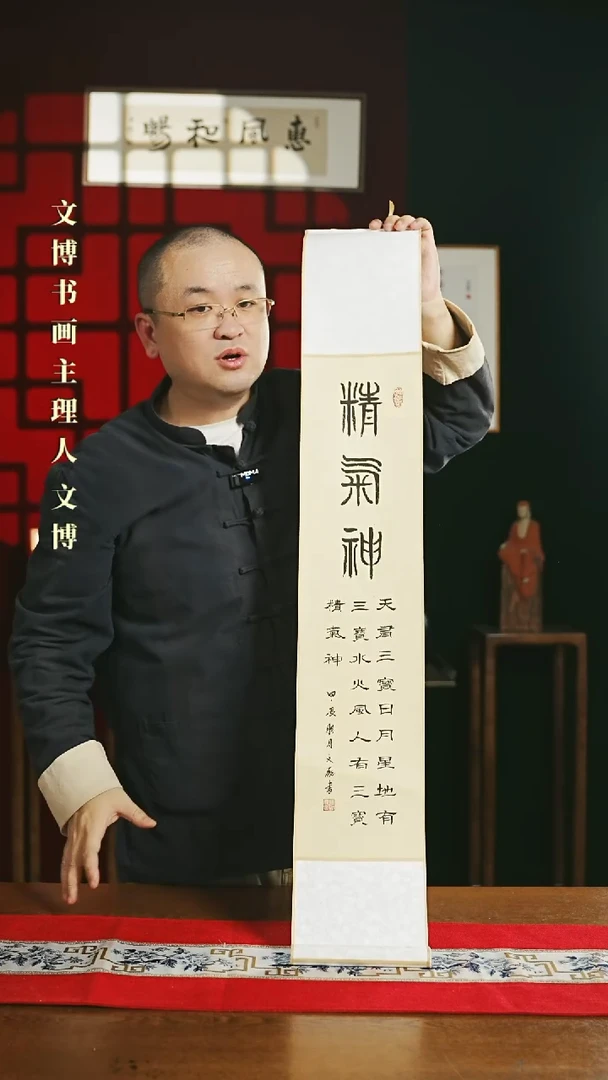 惠風和暢
文博书画主理人文博
精氣神
天有三寶日月星地有
三寶水火風人有三寶
精氣神
甲辰 月文 書